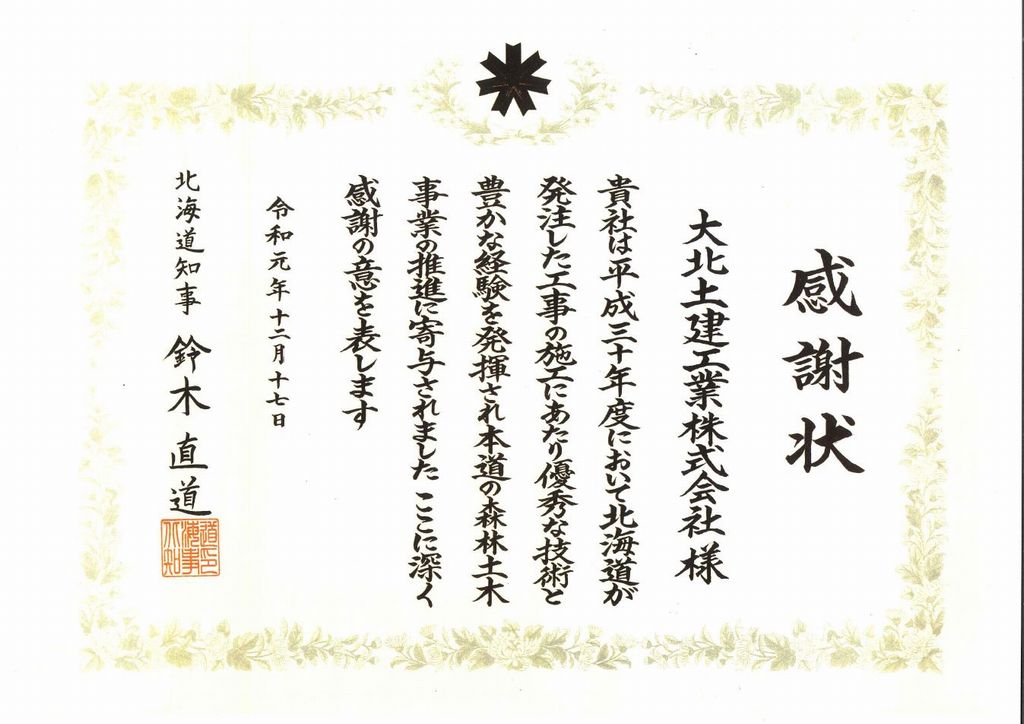 感謝状
大北土建工業株式会社様
貴社は平成三十年度において北海道が
発注した工事の施工にあたり優秀な技術と
豊かな経験を発揮され本道の森林土木
事業の推進に寄与されました ここに深く
感謝の意を表します
令和元年十二月十七日
北海道知事 鈴木直道
北海道知事之印